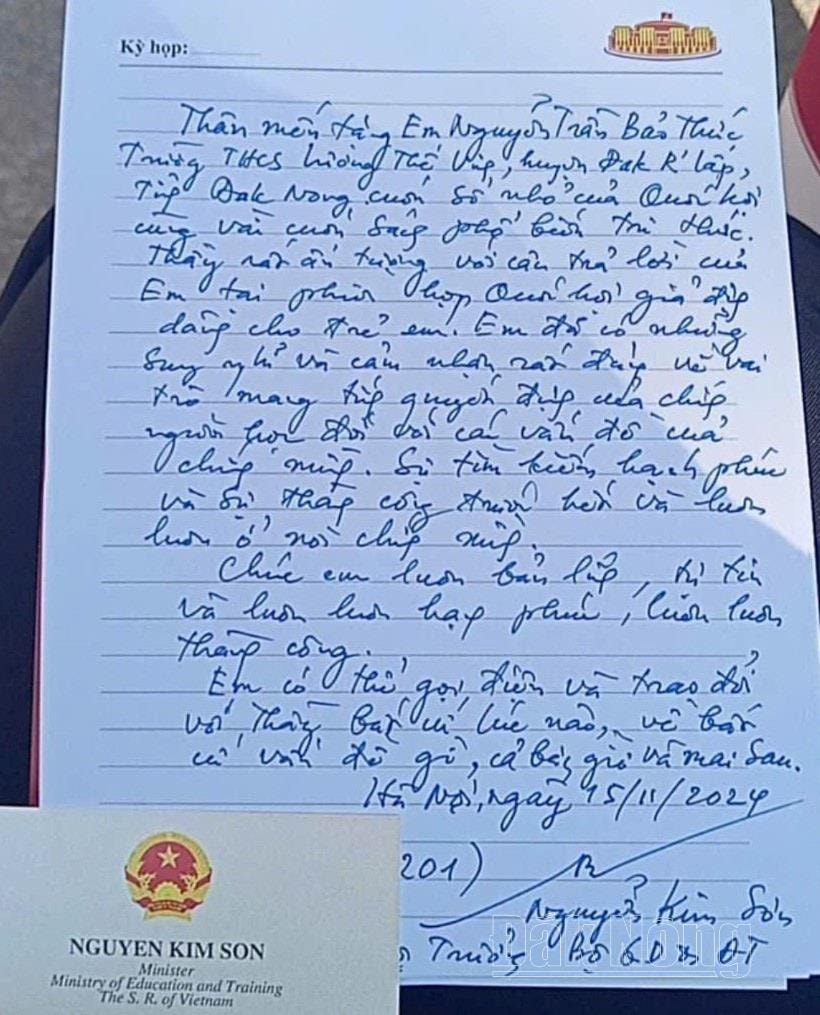 Kỳ họp:
Thân mến tặng Em Nguyễn Trần Bảo Thức
Trường THCS Lương Thế Vinh, huyện Đak R'lấp,
Tỉnh Đak Nông cuốn sổ nhỏ của Quốc hội
cùng vài cuốn sách phổ biến tri thức.
Thầy rất ấn tượng với câu trả lời của
Em tại phiên họp Quốc hội giả định
dành cho trẻ em. Em đã có những
suy nghĩ và cảm nhận rất đúng về vai
trò mang tính quyết định của chính
người học đối với các vấn đề của
chính mình. Sự tìm kiếm hạnh phúc
và sự thành công trước hết và luôn
luôn ở nơi chính mình.
Chúc em luôn bản lĩnh, tự tin
và luôn luôn hạnh phúc, luôn luôn
thành công.
Em có thể gọi điện và trao đổi
với Thầy bất cứ lúc nào, về bất
cứ vấn đề gì, cả bây giờ và mai sau.
Hà Nội, ngày 15/11/2024
201)
Nguyễn Kim Sơn
Trưởng Bộ GD và ĐT
Đắk Nông
NGUYEN KIM SON
Minister
Ministry of Education and Training
The S. R. of Vietnam